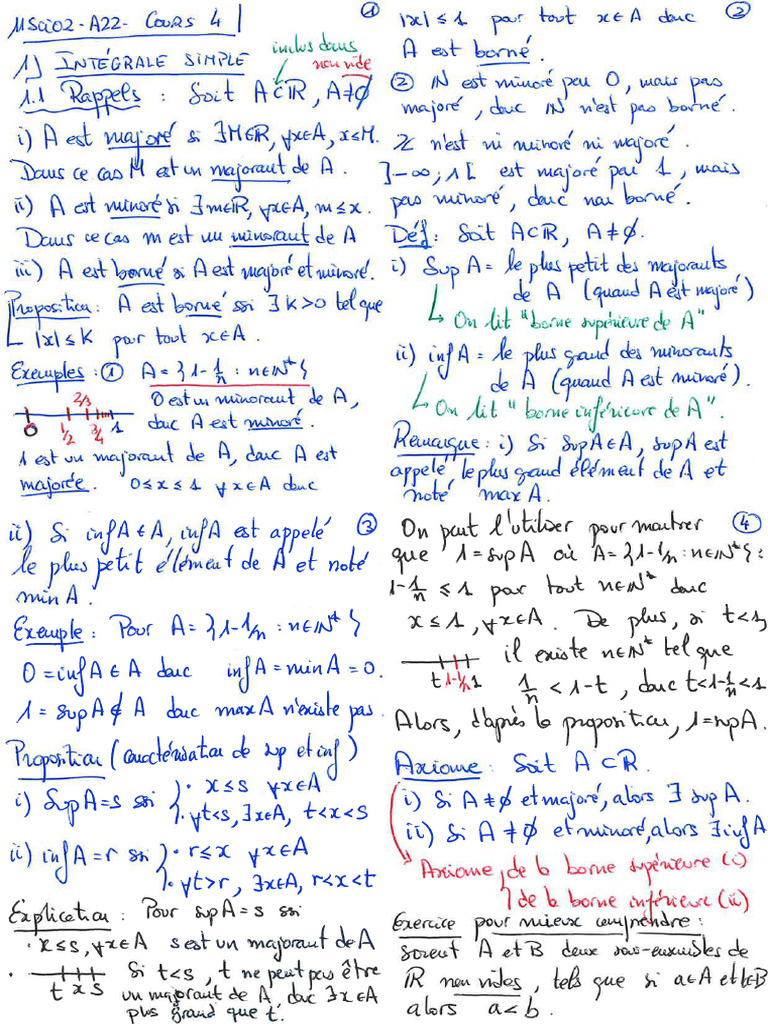 MSci02-A22- Cours 4
①
1) INTÉGRALE SIMPLE
inclus dans
non vide
1.1 Rappels : Soit A⊂ℝ, A≠∅
i) A est majoré si ∃M∈ℝ, ∀x∈A, x≤M.
Dans ce cas M est un majorant de A.
ii) A est minoré si ∃m∈ℝ, ∀x∈A, m≤x.
Dans ce cas m est un minorant de A
iii) A est borné si A est majoré et minoré.
Proposition: A est borné ssi ∃ K>0 tel que
|x|≤K pour tout x∈A.
Exemples : ① A = {1-1/n : n∈ℕ*}
2/3
0 1/2 3/4 1
0 est un minorant de A,
donc A est minoré.
1 est un majorant de A, donc A est
majorée. 0≤x≤1 ∀x∈A donc
②
|x|≤1 pour tout x∈A donc
A est borné.
② ℕ est minoré par 0, mais pas
majoré, donc ℕ n'est pas borné.
ℤ n'est ni minoré ni majoré.
]-∞;1[ est majoré par 1, mais
pas minoré, donc non borné.
Déf: Soit A⊂ℝ, A≠∅.
i) Sup A = le plus petit des majorants
de A (quand A est majoré)
↳ On lit "borne supérieure de A"
ii) inf A = le plus grand des minorants
de A (quand A est minoré).
↳ On lit "borne inférieure de A".
Remarque : i) Si SupA∈A, supA est
appelé le plus grand élément de A et
noté max A.
③
ii) Si infA∈A, infA est appelé
le plus petit élément de A et noté
min A.
Exemple : Pour A = {1-1/n : n∈ℕ*}
0 = infA∈A donc infA = minA = 0.
1 = supA∉A donc maxA n'existe pas.
Proposition (caractérisation de sup et inf)
i) SupA=s ssi { · x≤s ∀x∈A
· ∀t<s, ∃x∈A, t<x≤s
ii) infA=r ssi { · r≤x ∀x∈A
· ∀t>r, ∃x∈A, r≤x<t
Explication : Pour supA=s ssi
· x≤s, ∀x∈A s est un majorant de A
· t x s Si t<s, t ne peut pas être
un majorant de A, donc ∃x∈A
plus grand que t.
④
On peut l'utiliser pour montrer
que 1=supA où A={1-1/n : n∈ℕ*} :
1-1/n ≤1 pour tout n∈ℕ* donc
x≤1, ∀x∈A. De plus, si t<1,
il existe n∈ℕ* tel que
t 1-1/n 1
1/n < 1-t, donc t<1-1/n<1
Alors, d'après la proposition, 1=supA.
Axiome : Soit A⊂ℝ.
i) Si A≠∅ et majoré, alors ∃ supA.
ii) Si A≠∅ et minoré, alors ∃ infA
Axiome de la borne supérieure (i)
de la borne inférieure (ii)
Exercice pour mieux comprendre :
Soient A et B deux sous-ensembles de
ℝ non vides, tels que si a∈A et b∈B
alors a<b.